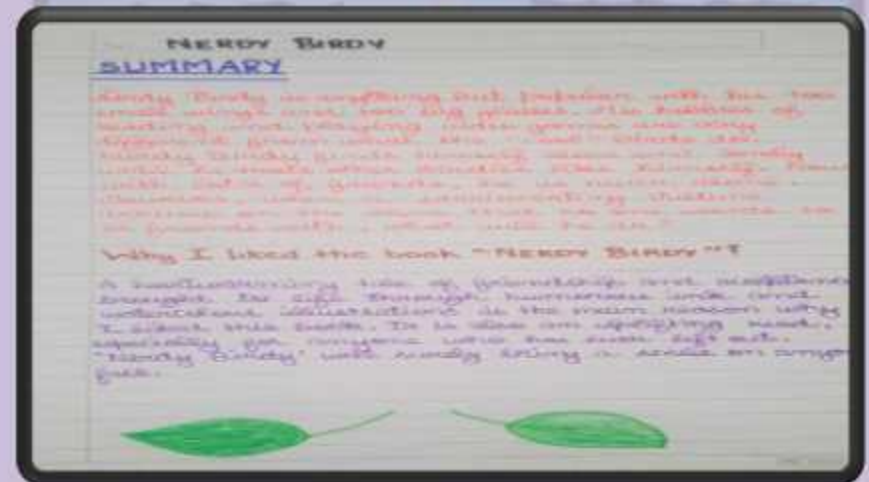 NERDY BIRDY
SUMMARY
Nerdy Birdy is anything but popular with his too
small wings and too big glasses. His hobbies of
reading and playing video games are very
different from what the cool birds do.
Nerdy Birdy finds himself alone and lonely
until he meets other birdies like himself. Now
with lots of friends, he is never alone.
However, when a
on the one that no one wants to
be friends with, what will he do?
Why I liked the book "NERDY BIRDY"?
A heartwarming tale of friendship and acceptance
brought to life through humorous and
illustrations is the main reason why
I liked this book. It is also an uplifting read,
especially for anyone who has ever felt left out.
"Nerdy Birdy" will surely bring a smile on anyone
face.